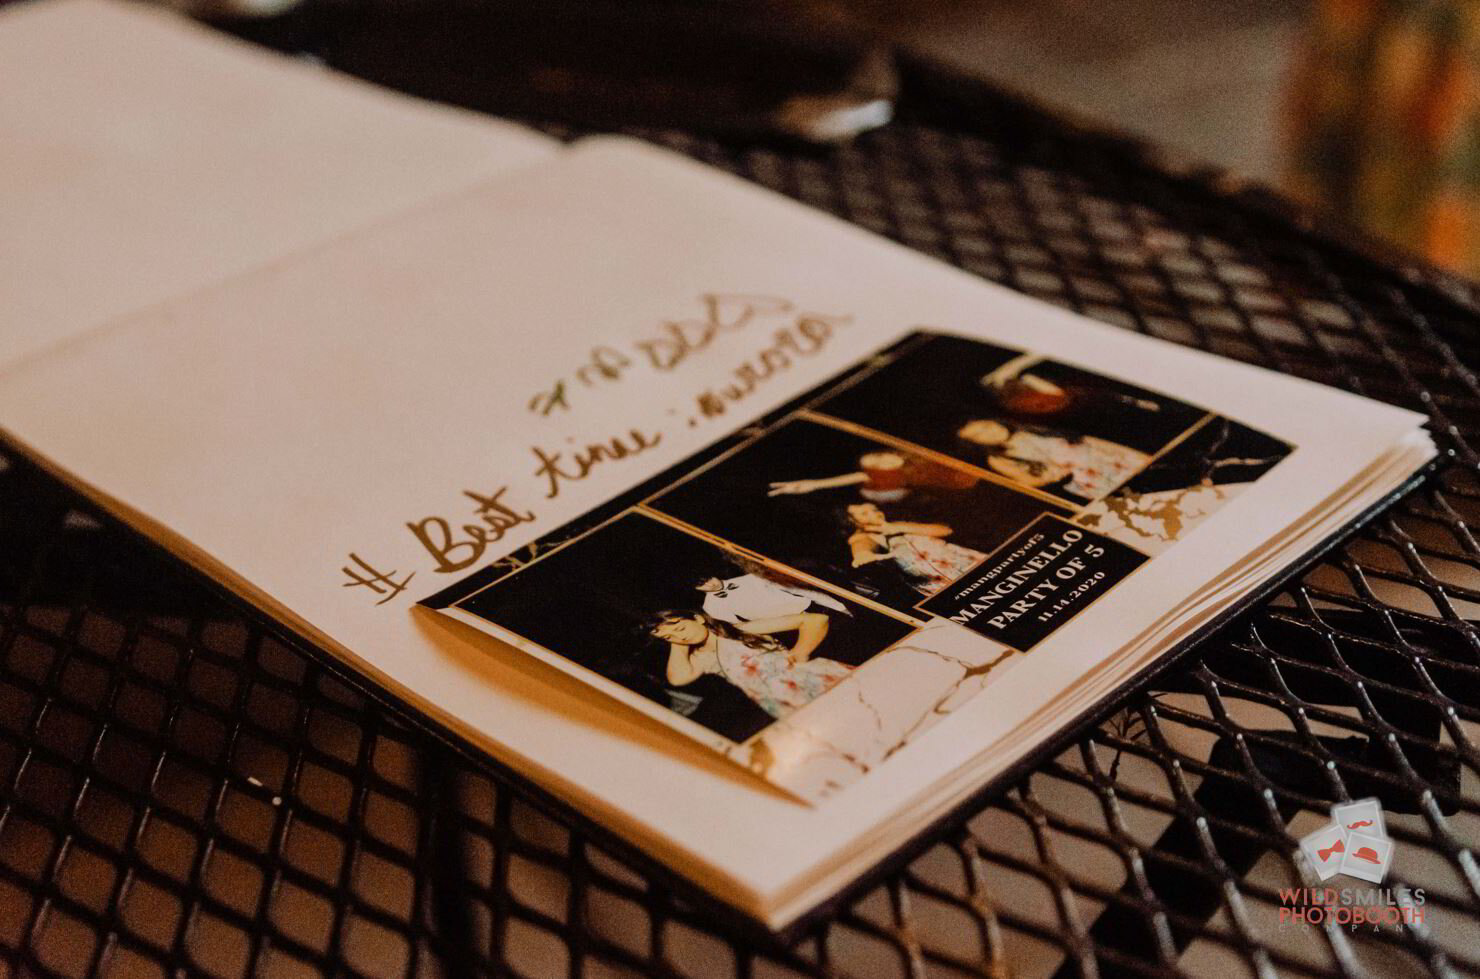 # Best time :Aurora
#mangpartyof5
MANGINELLO
PARTY OF 5
11.14.2020
WILDSMILES
PHOTOBOOTH
COMPANY